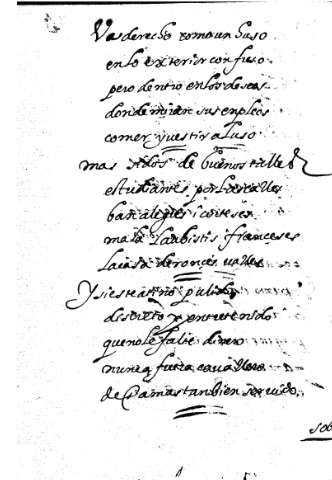 Vas derecho como un huso
en lo exterior confuso
pero dentro en los deseos
donde miran sus enpleos
comer y vestir al uso
mas de buenos talle
estudiantes por las calles
ban alegres i corteses
mala franceses
la casa de ronces valles
Y si este año
discreto y entretenido
que no le falte dinero
nunca fuera cavallero
de Damas tan bien servido
sob